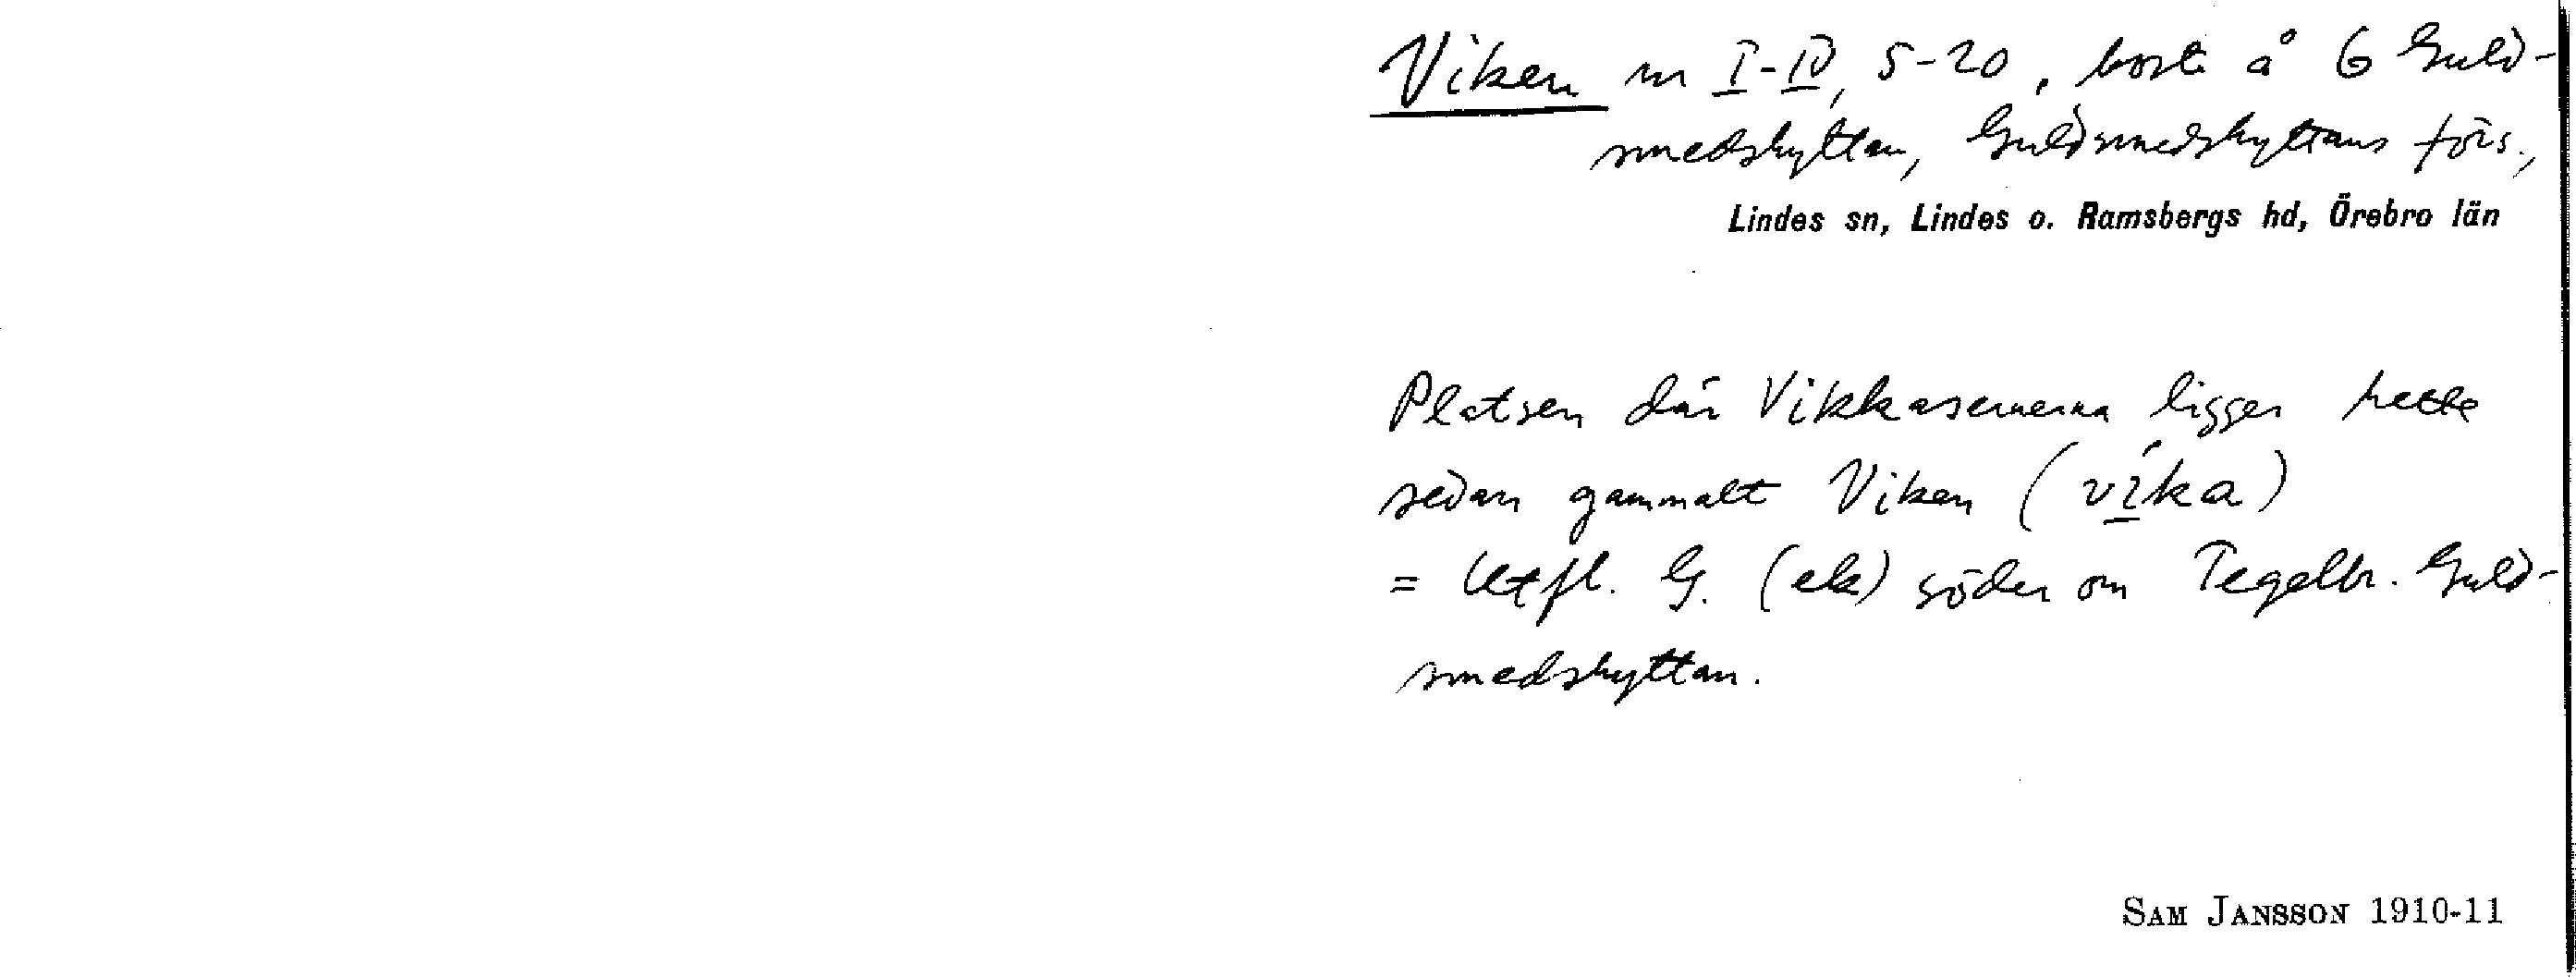 Viken nr I-IV, 5-20, bost. å G Guld-
smedshyttan, Guldsmedshyttans förs.,
Lindes sn, Lindes o. Ramsbergs hd, Örebro län
Platsen där Vikkasernerna ligger hette
sedan gammalt Viken (víka)
= Utfl. G. (ek) söder om Tegelbr. Guld-
smedshyttan.
SAM JANSSON 1910-11